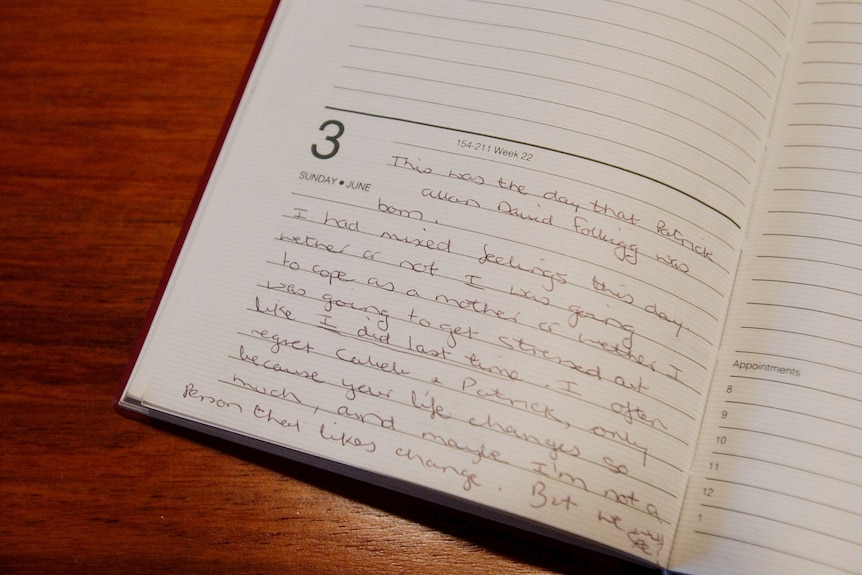 3
154-211 Week 22
SUNDAY • JUNE
This was the day that Patrick
Allan David Folbigg was
born.
I had mixed feelings this day.
wether or not I was going
to cope as a mother or wether I
was going to get stressed out
like I did last time. I often
regret Caleb & Patrick, only
because your life changes so
much, and maybe I'm not a
Person that likes change. But we will
see!
Appointments
8
9
10
11
12
1